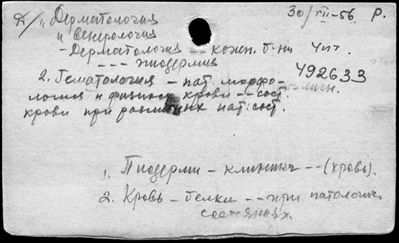 Д/1, Дерматология 30/VII-56 Р.
и Венерология
- Дерматология -- кожн. б-ни Чит.
--- пиодермия
492633
2. Гематология - пат. морфо-
логия и физиол. крови -- сост.
крови при различных пат. сост.
1. Пиодерми - клиника -- (кровь).
2. Кровь - белки -- при патологич.
состояниях.